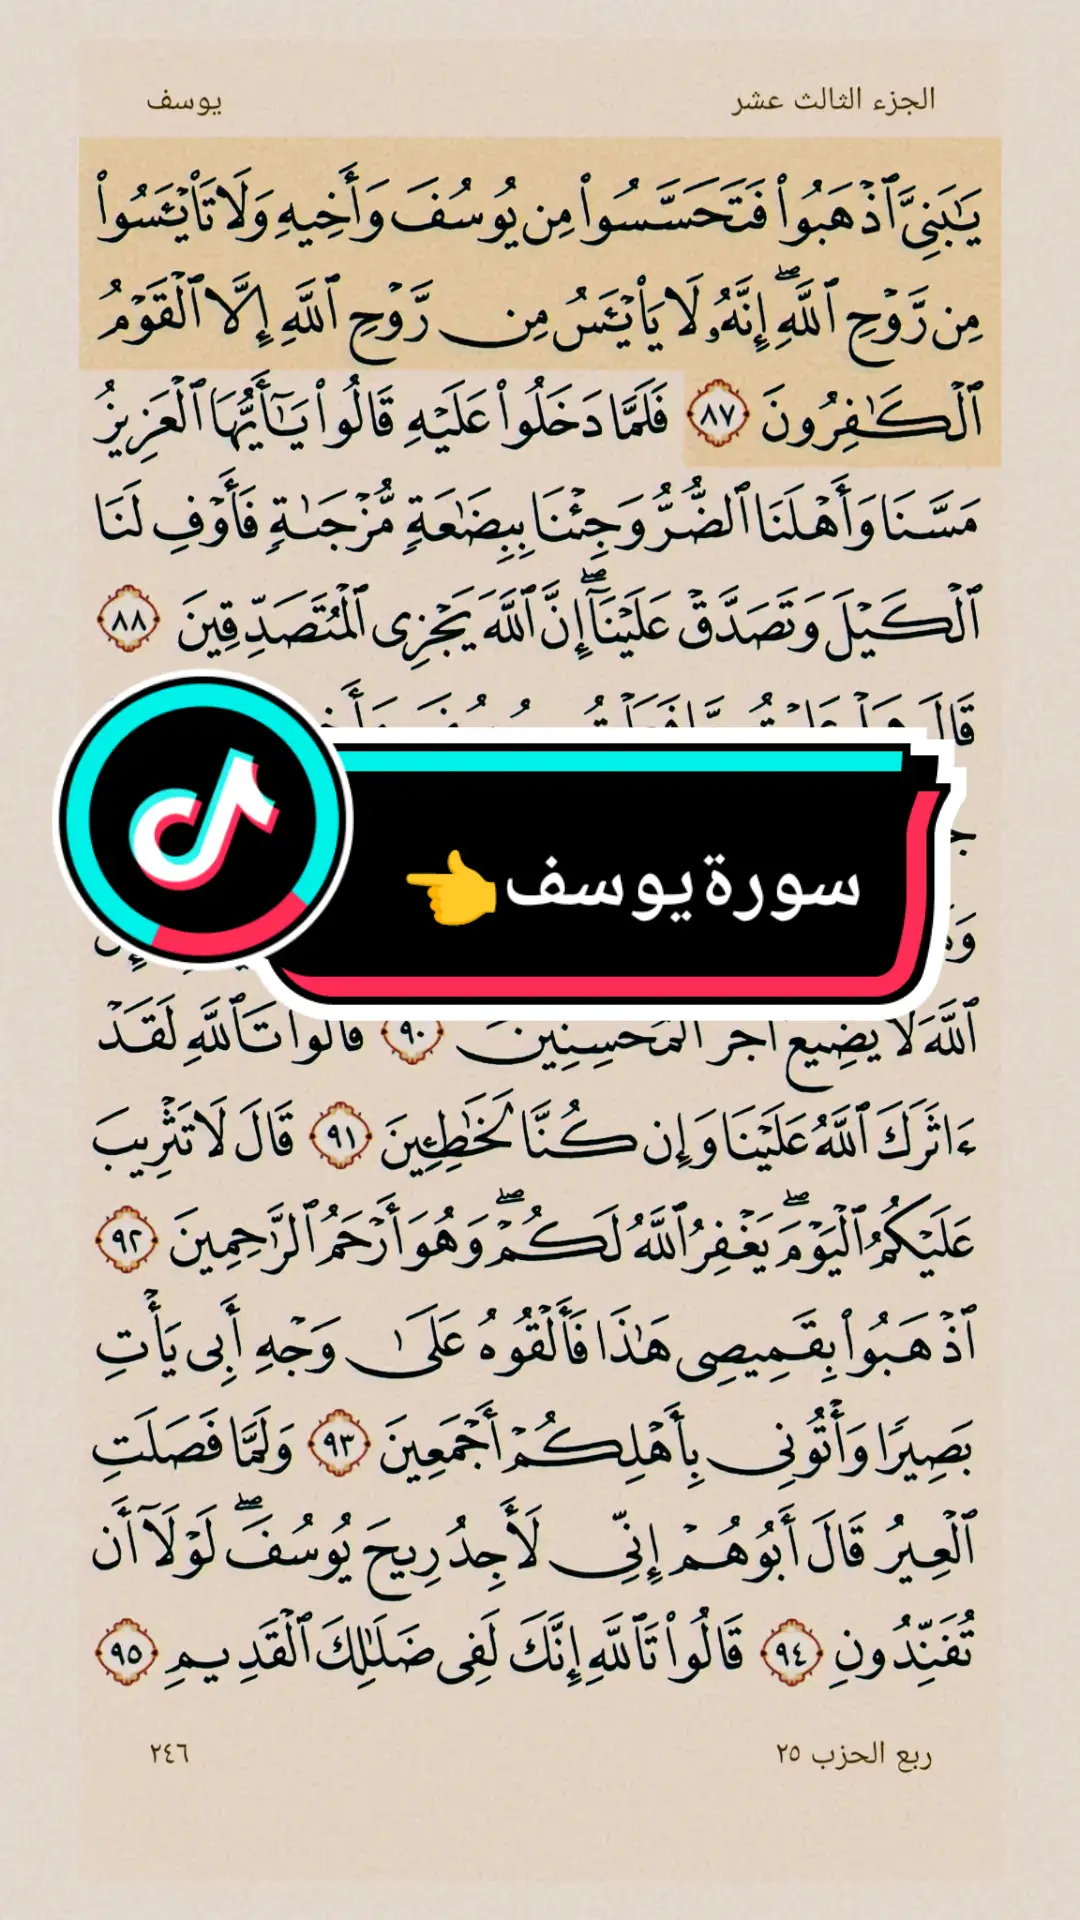 الجزء الثالث عشر
يوسف
يَٰبَنِىَّ ٱذْهَبُوا۟ فَتَحَسَّسُوا۟ مِن يُوسُفَ وَأَخِيهِ وَلَا تَا۟يْـَٔسُوا۟
مِن رَّوْحِ ٱللَّهِ ۖ إِنَّهُۥ لَا يَا۟يْـَٔسُ مِن رَّوْحِ ٱللَّهِ إِلَّا ٱلْقَوْمُ
ٱلْكَٰفِرُونَ ٨٧ فَلَمَّا دَخَلُوا۟ عَلَيْهِ قَالُوا۟ يَٰٓأَيُّهَا ٱلْعَزِيزُ
مَسَّنَا وَأَهْلَنَا ٱلضُّرُّ وَجِئْنَا بِبِضَٰعَةٍ مُّزْجَىٰةٍ فَأَوْفِ لَنَا
ٱلْكَيْلَ وَتَصَدَّقْ عَلَيْنَآ ۖ إِنَّ ٱللَّهَ يَجْزِى ٱلْمُتَصَدِّقِينَ ٨٨
قَالَ
سورة يوسف👈
ٱللَّهَ لَا يُضِيعُ أَجْرَ ٱلْمُحْسِنِينَ ٩٠ قَالُوا۟ تَٱللَّهِ لَقَدْ
ءَاثَرَكَ ٱللَّهُ عَلَيْنَا وَإِن كُنَّا لَخَٰطِـِٔينَ ٩١ قَالَ لَا تَثْرِيبَ
عَلَيْكُمُ ٱلْيَوْمَ ۖ يَغْفِرُ ٱللَّهُ لَكُمْ ۖ وَهُوَ أَرْحَمُ ٱلرَّٰحِمِينَ ٩٢
ٱذْهَبُوا۟ بِقَمِيصِى هَٰذَا فَأَلْقُوهُ عَلَىٰ وَجْهِ أَبِى يَأْتِ
بَصِيرًا وَأْتُونِى بِأَهْلِكُمْ أَجْمَعِينَ ٩٣ وَلَمَّا فَصَلَتِ
ٱلْعِيرُ قَالَ أَبُوهُمْ إِنِّى لَأَجِدُ رِيحَ يُوسُفَ ۖ لَوْلَآ أَن
تُفَنِّدُونِ ٩٤ قَالُوا۟ تَٱللَّهِ إِنَّكَ لَفِى ضَلَٰلِكَ ٱلْقَدِيمِ ٩٥
ربع الحزب ٢٥
٢٤٦